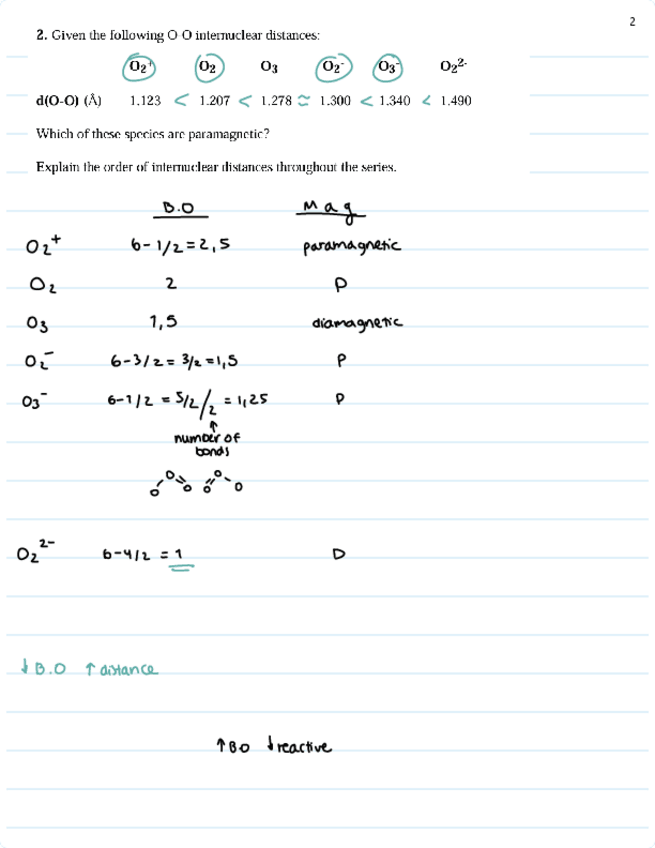 2
2. Given the following O-O internuclear distances:
O₂⁺ O₂ O₃ O₂⁻ O₃⁻ O₂²⁻
d(O-O) (Å) 1.123 < 1.207 < 1.278 ≃ 1.300 < 1.340 < 1.490
Which of these species are paramagnetic?
Explain the order of internuclear distances throughout the series.
B.O Mag
O₂⁺ 6-1/2=2,5 paramagnetic
O₂ 2 P
O₃ 1,5 diamagnetic
O₂⁻ 6-3/2 = 3/2 =1,5 P
O₃⁻ 6-1/2 = 5/2/2 = 1,25 P
↑
number of
bonds
O O
O O O O
O₂²⁻ 6-4/2 = 1 D
↓ B.O ↑ distance
↑BO ↓reactive